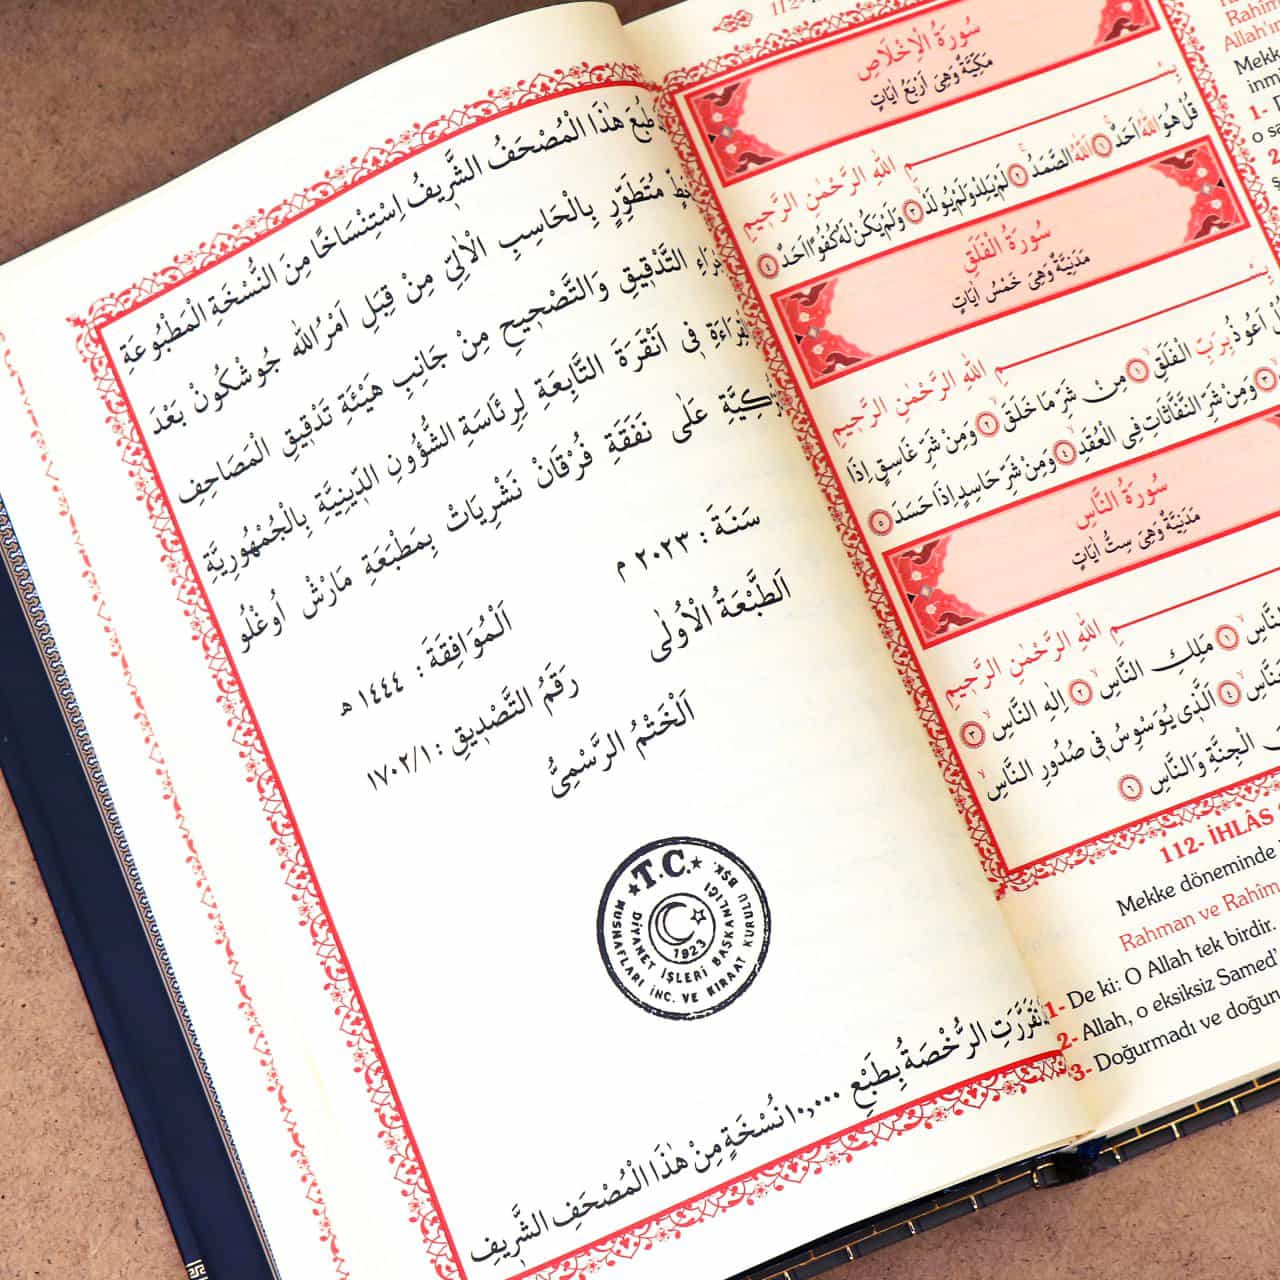 طُبِعَ هٰذَا الْمُصْحَفُ الشَّرٖيفُ اِسْتِنْسَاخًا مِنَ النُّسْخَةِ الْمَطْبُوعَةِ
مُتَطَوِّرٍ بِالْحَاسِبِ الْاٰلِيِّ مِنْ قِبَلِ اَمْرُ اللّٰه جُوشْكُونْ بَعْدَ
التَّدْقٖيقِ وَالتَّصْحٖيحِ مِنْ جَانِبِ هَيْئَةِ تَدْقٖيقِ الْمَصَاحِفِ
فٖى اَنْقَرَةَ التَّابِعَةِ لِرِئَاسَةِ الشُّؤُونِ الدّٖينِيَّةِ بِالْجُمْهُورِيَّةِ
عَلٰى نَفَقَةِ فُرْقَانْ نَشْرِيَاتْ بِمَطْبَعَةِ مَارْشْ اُوغْلُو
سَنَةَ : ٢٠٢٣ م
اَلْمُوَافِقَةَ : ١٤٤٤ هـ
اَلطَّبْعَةُ الْاُولٰى
رَقَمُ التَّصْدٖيقِ : ١٧٠٢/١
اَلْخَتْمُ الرَّسْمِىُّ
T.C.
DİYANET İŞLERİ BAŞKANLIĞI
MUSHAFLARI İNC. VE KIRAAT KURULU BŞK.
1923
تَقَرَّرَتِ الرُّخْصَةُ بِطَبْعِ ١٠,٠٠٠ نُسْخَةٍ مِنْ هٰذَا الْمُصْحَفِ الشَّرٖيفِ
سُورَةُ الْاِخْلَاصِ
مَكِّيَّةٌ وَهِىَ اَرْبَعُ اٰيَاتٍ
بِسْمِ اللّٰهِ الرَّحْمٰنِ الرَّحٖيمِ
قُلْ هُوَ اللّٰهُ اَحَدٌ ١ اَللّٰهُ الصَّمَدُ ٢ لَمْ يَلِدْ وَلَمْ يُولَدْ ٣ وَلَمْ يَكُنْ لَهُ كُفُوًا اَحَدٌ ٤
سُورَةُ الْفَلَقِ
مَدَنِيَّةٌ وَهِىَ خَمْسُ اٰيَاتٍ
بِسْمِ اللّٰهِ الرَّحْمٰنِ الرَّحٖيمِ
اَعُوذُ بِرَبِّ الْفَلَقِ ١ مِنْ شَرِّ مَا خَلَقَ ٢ وَمِنْ شَرِّ غَاسِقٍ اِذَا
٣ وَمِنْ شَرِّ النَّفَّاثَاتِ فِى الْعُقَدِ ٤ وَمِنْ شَرِّ حَاسِدٍ اِذَا حَسَدَ ٥
سُورَةُ النَّاسِ
مَدَنِيَّةٌ وَهِىَ سِتُّ اٰيَاتٍ
بِسْمِ اللّٰهِ الرَّحْمٰنِ الرَّحٖيمِ
النَّاسِ ١ مَلِكِ النَّاسِ ٢ اِلٰهِ النَّاسِ ٣
٤ اَلَّذٖى يُوَسْوِسُ فٖى صُدُورِ النَّاسِ
الْجِنَّةِ وَالنَّاسِ ٦
112- İHLÂS
Mekke döneminde
Rahman ve Rahîm
1- De ki: O Allah tek birdir.
2- Allah, o eksiksiz Samed'
3- Doğurmadı ve doğu
Rahîm
Allah'ın
Mekke
1-
o
2